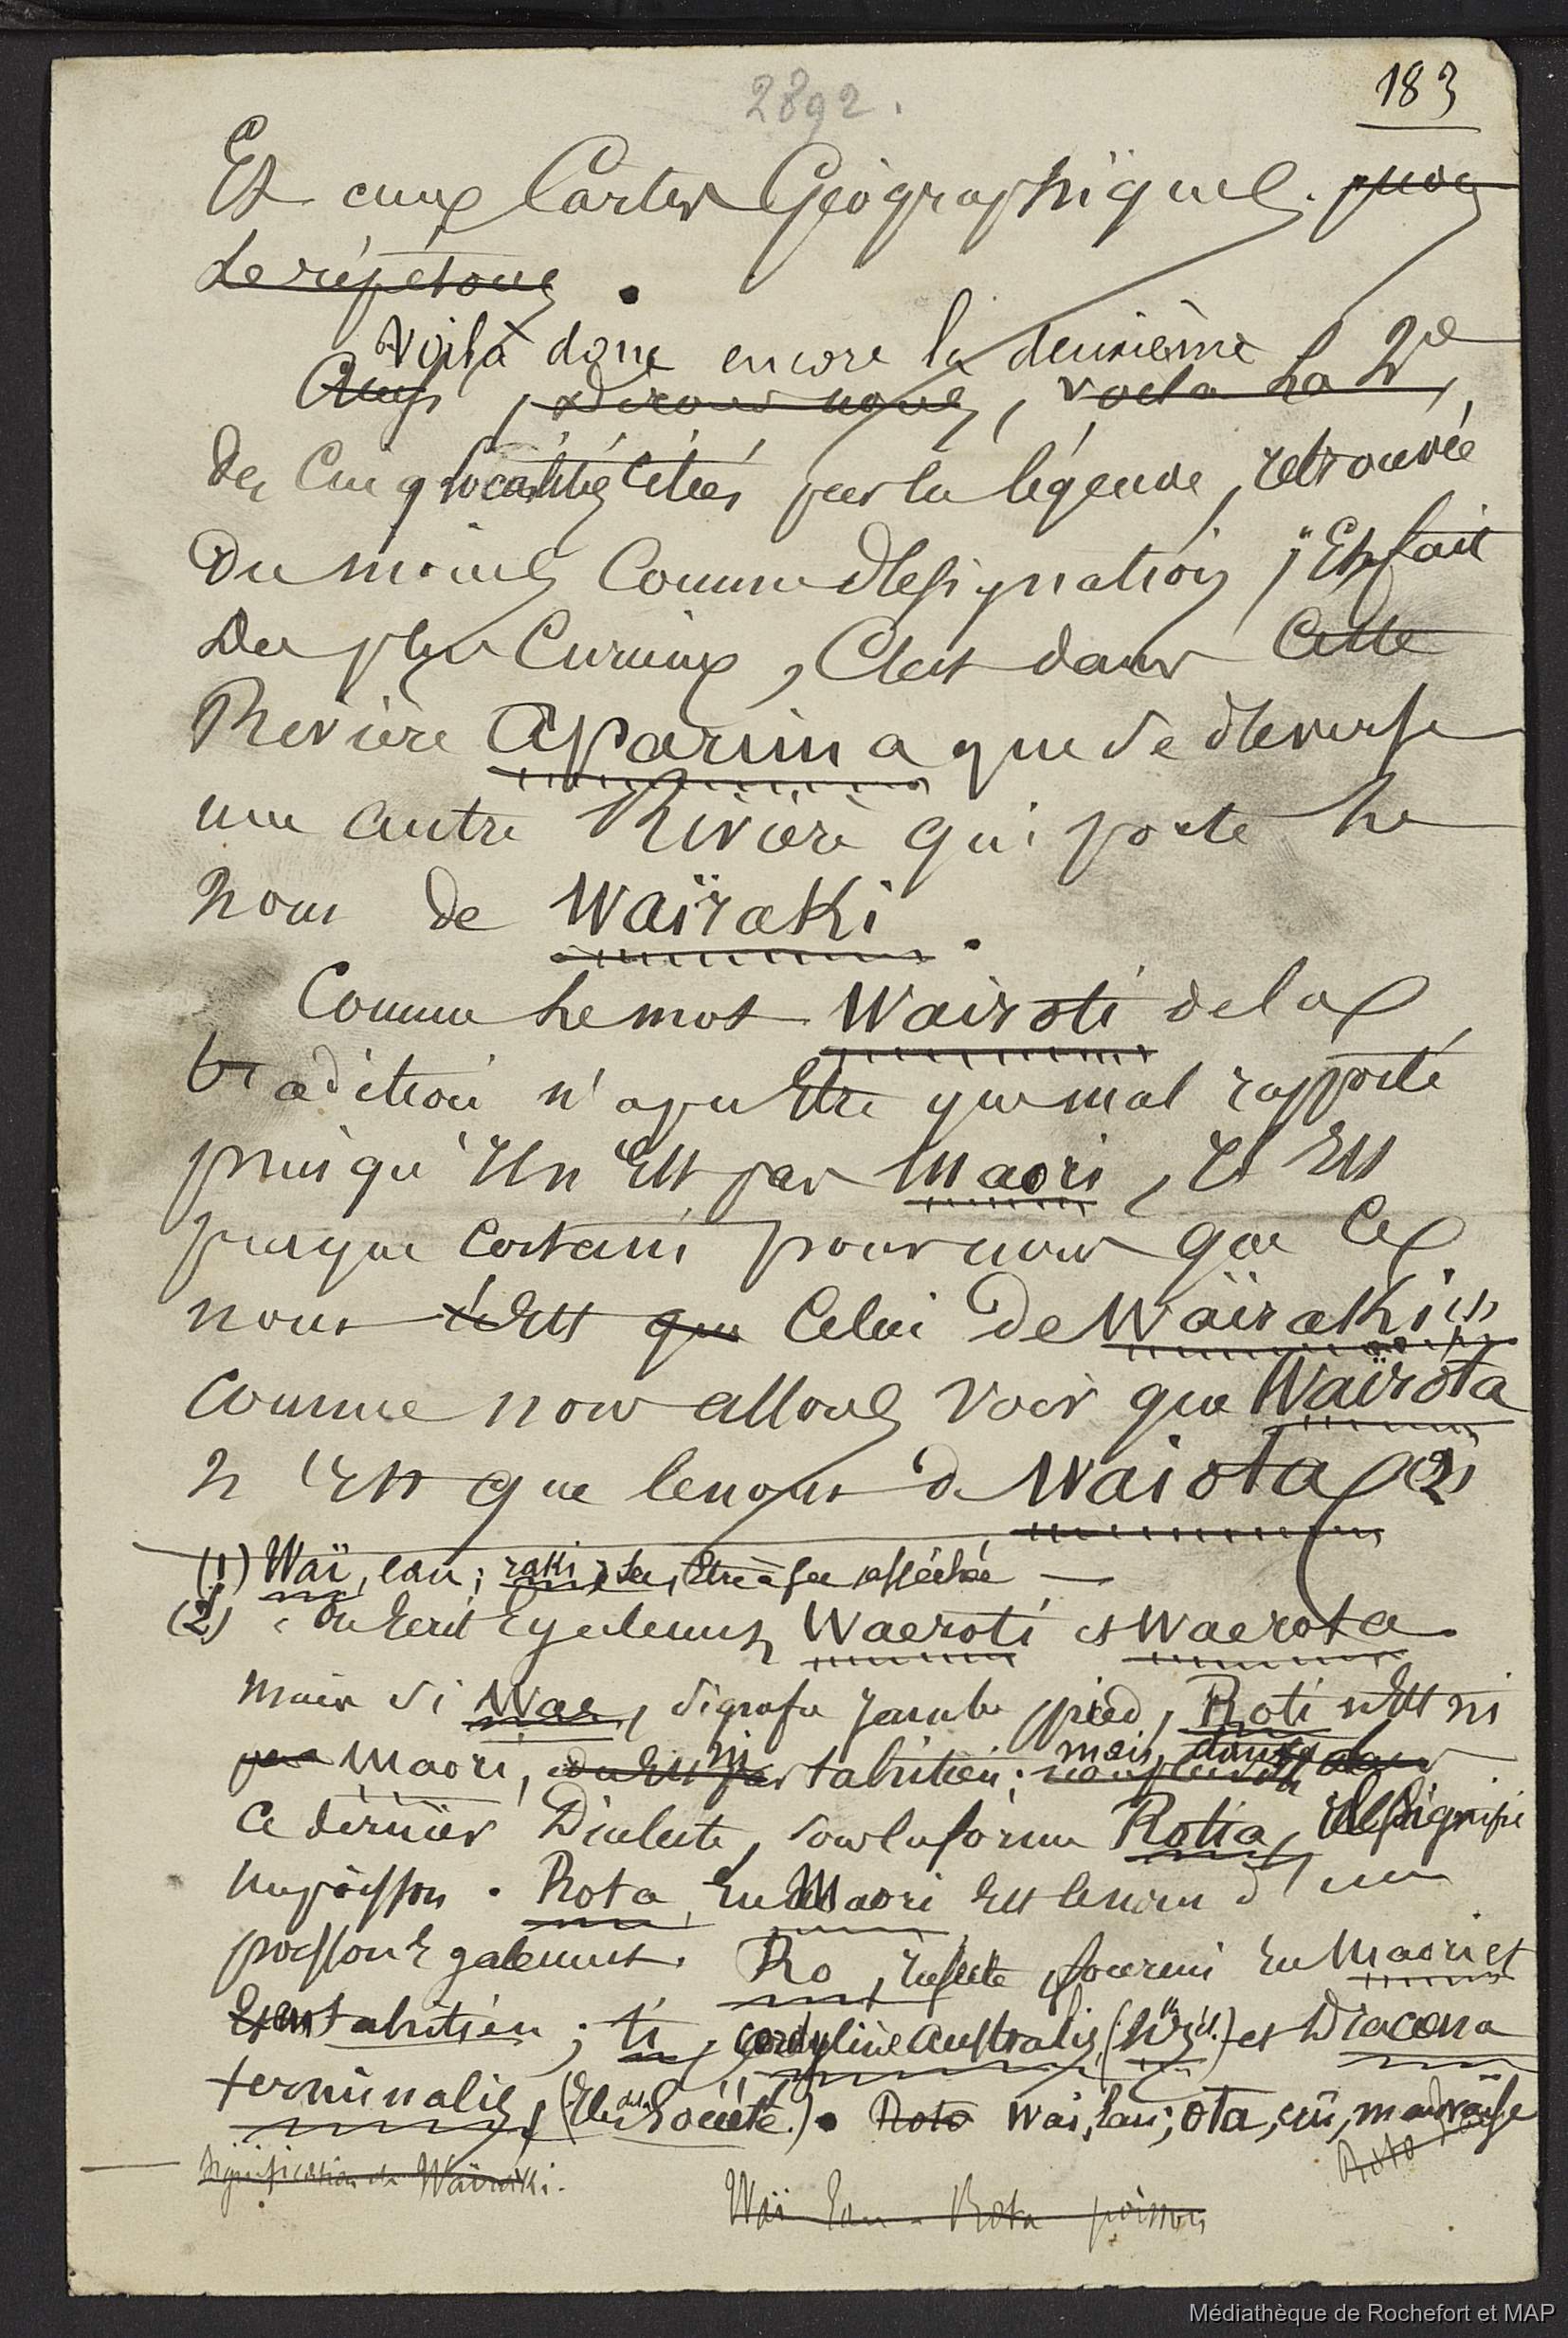 2892.
183
Et aux Cartes Géographiques. nous
le répétons.
Voilà donc encore la deuxième
Ainsi, dirons nous, voilà la 2e
des cinq localités citées par la légende, retrouvée
du moins comme désignation; et fait
des plus curieux, c'est dans cette
Rivière Aparima que se déverse
une autre Rivière qui porte le
nom de Waïraki.
Comme le mot Waïroti de la
tradition n'a pu être que mal rapporté
puisqu'il n'est pas Maori, il est
presque certain pour nous que ce
nom n'est que celui de Waïraki (1)
comme nous allons voir que Waïrota
n'est que le nom de Waiota (2)
(1) Waï, eau; raki, sec, être à sec, desséchée —
(2) On écrit également Waeroti et Waerota.
mais si Wae, signifie jambe, pied, Roti n'est ni
pas Maori, ni tahitien; mais, dans
ce dernier Dialecte, sous la forme Rotia, il signifie
un poisson. Rota, en Maori est le nom d'un
poisson également. Ro, insecte, fourmi en Maori et
en tahitien; ti, cordyline australis, (Nlle Zél.) et Dracæna
terminalis, (Iles de la Société.). Roto Wai, eau; ota, crû, mauvaise
Roto
signification de Waïraki.
Waï Eau - Rota poisson
Médiathèque de Rochefort et MAP